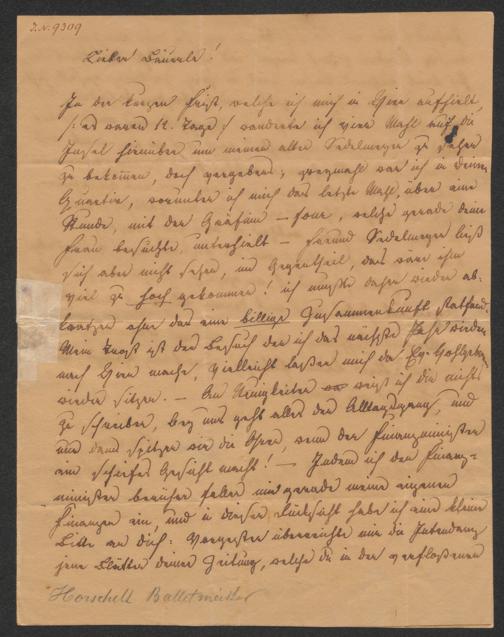 I.N. 9309
Lieber Bäuerle!
In der kurzen Frist, welche ich mich in Wien aufhielt,
/: es waren 12. Tage :/ wanderte ich vier Mahl auf die
Insel hinüber um meinen alten Sedelmeyer zu sehen
zu bekommen, doch vergebens; zweymahl war ich in deinem
Quartier, worunter ich mich das letzte Mahl, über eine
Stunde, mit der Gräfinn welche gerade deine
Frau besuchte, unterhielt – Freund Sedelmeyer ließ
sich aber nicht sehen, im Gegentheil, das wäre ihm
viel zu hoch gekommen! ich mußte daher wieder ab-
kratzen ohne das eine billige Zusammenkunft stattfand.
Mein Trost ist der Besuch den ich das nächste Jahr wieder
nach Wien mache, vielleicht lassen mich da Ew. Wohlgeb
wieder sitzen. – An Neuigkeiten weiß ich dir nichts
zu schreiben, bey uns geht alles den Alltagsgang, und
nur dann spitzen wir die Ohren, wenn der Finanzminister
ein schiefes Gesicht macht! – Indem ich den Finanz-
minister berühre fallen mir gerade meine eigenen
Finanzen ein, und in dieser Rücksicht habe ich eine kleine
Bitte an dich: Vorgestern überreichte mir die Intendanz
jene Blätter deiner Zeitung, welche du in der verflossenen
Horschelt Balletmeister